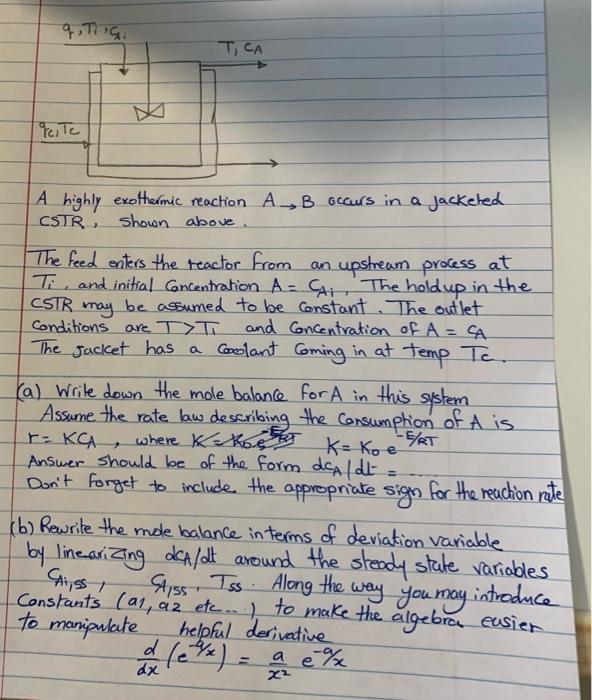 q, Ti, CAi
T, CA
qc, Tc
A highly exothermic reaction A → B occurs in a jacketed
CSTR, shown above.
The feed enters the reactor from an upstream process at
Ti, and initial Concentration A = CAi, The holdup in the
CSTR may be assumed to be constant. The outlet
Conditions are T>Ti and Concentration of A = CA
The Jacket has a Coolant Coming in at temp Tc.
(a) Write down the mole balance for A in this system
Assume the rate law describing the consumption of A is
r = KCA, where K = Ko e^-E/RT
Answer should be of the form dCA/dt = ......
Don't forget to include the appropriate sign for the reaction rate
(b) Rewrite the mole balance in terms of deviation variable
by linearizing dCA/dt around the steady state variables
CAi,ss, CA,ss, Tss. Along the way you may introduce
Constants (a1, a2 etc...) to make the algebra easier
to manipulate helpful derivative
d/dx (e^-a/x) = a/x² e^-a/x